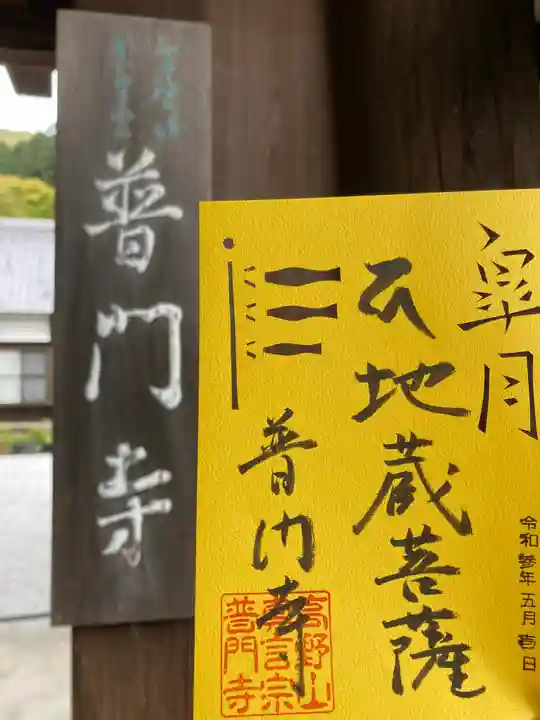 普門寺
皐月
地蔵菩薩
普門寺
令和参年五月壱日
高野山
真言宗
普門寺